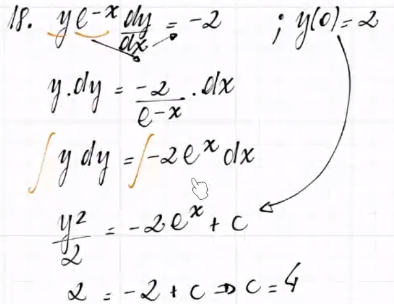 18. ye^-x dy/dx = -2 ; y(0)=2
y.dy = -2/e^-x . dx
∫ y dy = ∫ -2e^x dx
y²/2 = -2e^x + c
2 = -2 + c ⇒ c = 4